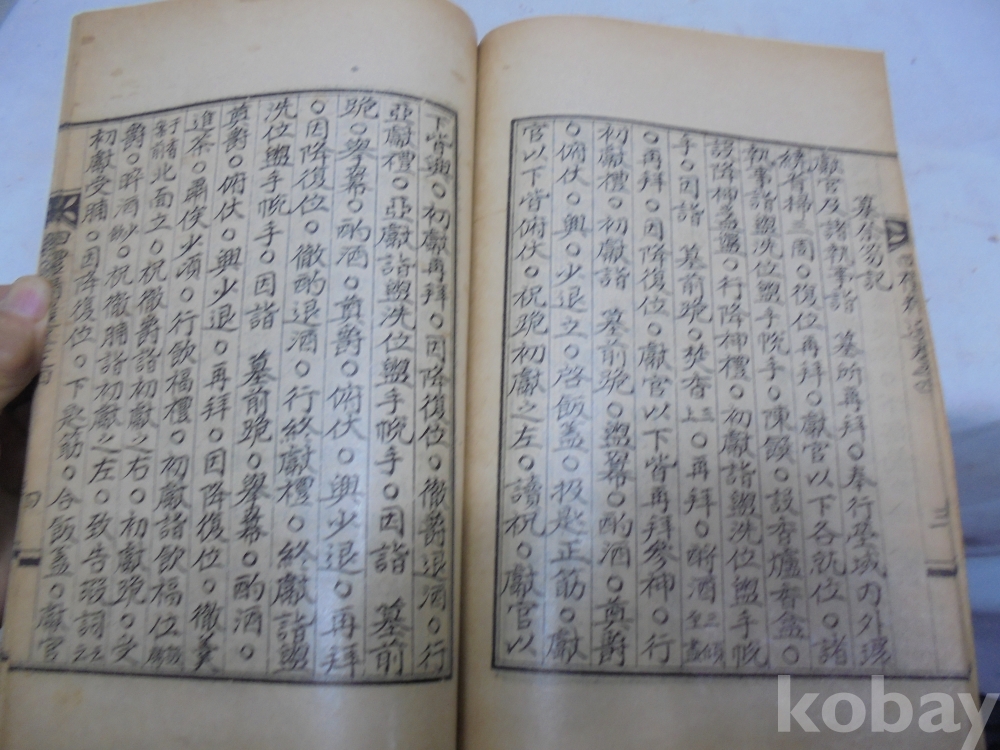 墓祭笏記
獻官及諸執事詣 墓所再拜○奉行塋域內外環
繞省掃三周○復位再拜○獻官以下各就位○諸
執事詣盥洗位盥手帨手○陳饌○設香爐香盒○
行降神禮○初獻詣盥洗位盥手帨
手○因詣 墓前跪○焚香三上○再拜○酹酒
○再拜○因降復位○獻官以下皆再拜參神○行
初獻禮○初獻詣 墓前跪○盥○酌酒○奠爵
○俯伏○興○少退立○啓飯盖○扱匙正筋○獻
官以下皆俯伏○祝跪初獻之左○讀祝○獻官以
下皆興○初獻再拜○因降復位○徹爵退酒○行
亞獻禮○亞獻詣盥洗位盥手帨手○因詣 墓前
跪○擧冪○酌酒○奠爵○俯伏○興少退○再拜
○因降復位○徹酌退酒○行終獻禮○終獻詣盥
洗位盥手帨手○因詣 墓前跪○擧冪○酌酒○
奠爵○俯伏○興少退○再拜○因降復位○徹羹
進茶○肅俟少頃○行飲福禮○初獻詣飲福位
北面立○祝徹爵詣初獻之右○初獻跪○受
爵○啐酒○祝徹脯詣初獻之左○致告嘏詞
初獻受脯○因降復位○下匙筋○合飯盖○獻官
kobay